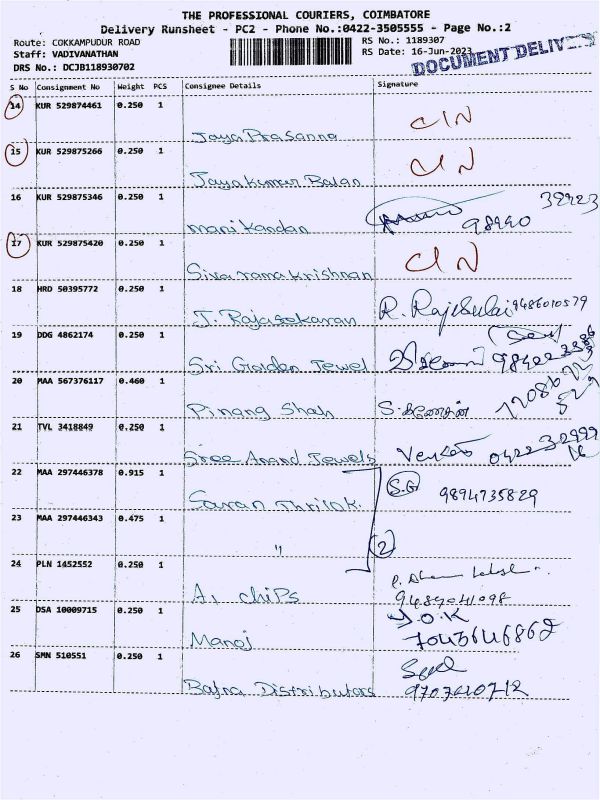 THE PROFESSIONAL COURIERS, COIMBATORE
Delivery Runsheet - PC2 - Phone No.:0422-3505555 - Page No.:2
Route: COKKAMPUDUR ROAD
RS No.: 1189307
Staff: VADIVANATHAN
RS Date: 16-Jun-2023
DOCUMENT
DRS No.: DCJB118930702
S No Consignment No Weight PCS Consignee Details Signature
14 KUR 529874461 0.250 1
Jaya Prasanna
15 KUR 529875266 0.250 1
Jayakumar Balan
16 KUR 529875346 0.250 1
manikandan 98490
17 KUR 529875420 0.250 1
Siva rama krishnan
18 HRD 50395772 0.250 1
J. Rajasekaran 9486010579
19 DDG 4862174 0.250 1
Sri Golden Jewel
20 MAA 567376117 0.460 1
Pinang Shah
21 TVL 3418849 0.250 1
Sree Anand Jewels
22 MAA 297446378 0.915 1
Saran Thrilok. S.G 9894735829
23 MAA 297446343 0.475 1
" 2
24 PLN 1452552 0.250 1
A1 chips 9489041098
25 DSA 10009715 0.250 1
Manoj 7043646862
26 SMN 510551 0.250 1
Bafna Distributors 9707410712